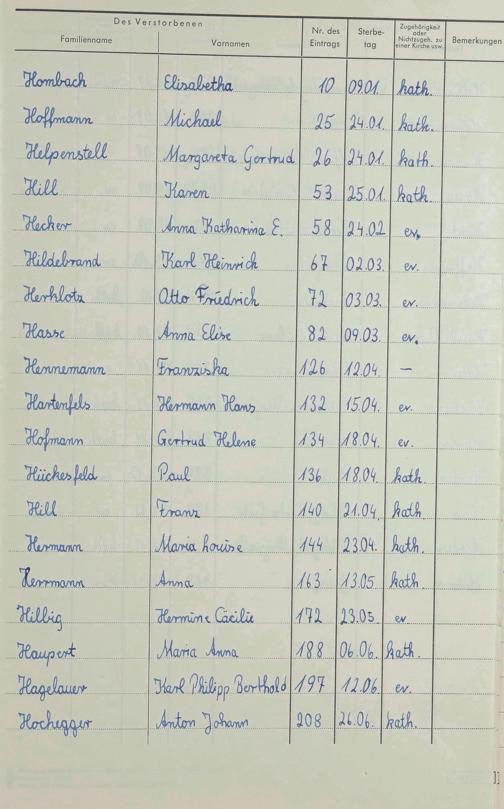 Des Verstorbenen
Familienname Vornamen Nr. des Eintrags Sterbe-tag Zugehörigkeit oder Nichtzugeh. zu einer Kirche usw. Bemerkungen
Hombach Elisabetha 10 09.01. kath.
Hoffmann Michael 25 24.01. kath.
Helpenstell Margareta Gertrud 26 24.01. kath.
Hill Karen 53 25.01. kath.
Hecker Anna Katharina E. 58 24.02 ev.
Hildebrand Karl Heinrich 67 02.03. ev.
Herklotz Otto Friedrich 72 03.03. ev.
Hasse Anna Elise 82 09.03. ev.
Hennemann Franziska 126 12.04. —
Hartenfels Hermann Hans 132 15.04. ev.
Hofmann Gertrud Helene 134 18.04. ev.
Hüchesfeld Paul 136 18.04. kath.
Hill Franz 140 21.04. kath.
Hermann Maria Louise 144 23.04. kath.
Herrmann Anna 163 13.05 kath.
Hilbig Hermine Cäcilie 172 23.05. ev.
Haupert Maria Anna 188 06.06. kath.
Hagelauer Karl Philipp Berthold 197 12.06. ev.
Hochegger Anton Johann 208 26.06. kath.